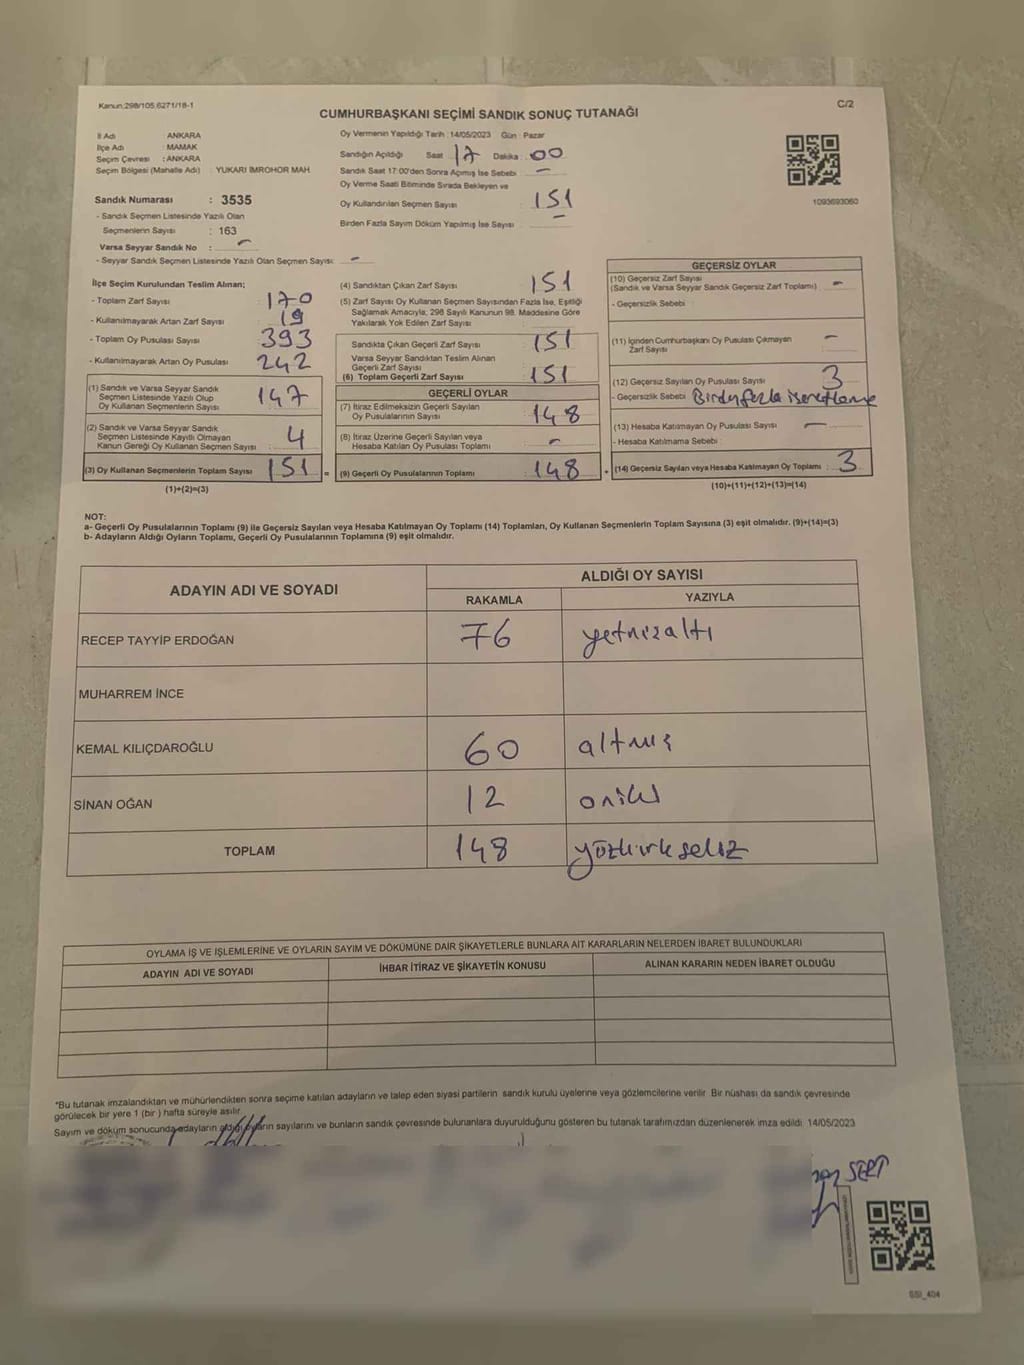 Kanun:298/105,6271/18-1
C/2
CUMHURBAŞKANI SEÇİMİ SANDIK SONUÇ TUTANAĞI
İl Adı : ANKARA
İlçe Adı : MAMAK
Seçim Çevresi : ANKARA
Seçim Bölgesi (Mahalle Adı) : YUKARI İMROHOR MAH
Sandık Numarası : 3535
- Sandık Seçmen Listesinde Yazılı Olan
Seçmenlerin Sayısı : 163
Varsa Seyyar Sandık No : -
- Seyyar Sandık Seçmen Listesinde Yazılı Olan Seçmen Sayısı: -
Oy Vermenin Yapıldığı Tarih :14/05/2023 Gün : Pazar
Sandığın Açıldığı Saat 17 Dakika : 00
Sandık Saat 17:00'den Sonra Açımış İse Sebebi : -
Oy Verme Saati Bitiminde Sırada Bekleyen ve
Oy Kullandırılan Seçmen Sayısı : 151
Birden Fazla Sayım Döküm Yapılmış İse Sayısı : -
1093693060
İlçe Seçim Kurulundan Teslim Alınan;
- Toplam Zarf Sayısı : 170
- Kullanılmayarak Artan Zarf Sayısı : 19
- Toplam Oy Pusulası Sayısı : 393
- Kullanılmayarak Artan Oy Pusulası : 242
(1) Sandık ve Varsa Seyyar Sandık
Seçmen Listesinde Yazılı Olup
Oy Kullanan Seçmenlerin Sayısı : 147
(2) Sandık ve Varsa Seyyar Sandık
Seçmen Listesinde Kayıtlı Olmayan
Kanun Gereği Oy Kullanan Seçmen Sayısı : 4
(3) Oy Kullanan Seçmenlerin Toplam Sayısı : 151
(1)+(2)=(3)
(4) Sandıktan Çıkan Zarf Sayısı : 151
(5) Zarf Sayısı Oy Kullanan Seçmen Sayısından Fazla İse, Eşitliği
Sağlamak Amacıyla; 298 Sayılı Kanunun 98. Maddesine Göre
Yakılarak Yok Edilen Zarf Sayısı :
Sandıkta Çıkan Geçerli Zarf Sayısı : 151
Varsa Seyyar Sandıktan Teslim Alınan
Geçerli Zarf Sayısı :
(6) Toplam Geçerli Zarf Sayısı : 151
GEÇERLİ OYLAR
(7) İtiraz Edilmeksizin Geçerli Sayılan
Oy Pusulalarının Sayısı : 148
(8) İtiraz Üzerine Geçerli Sayılan veya
Hesaba Katılan Oy Pusulası Toplamı : -
= (9) Geçerli Oy Pusulalarının Toplamı : 148
GEÇERSİZ OYLAR
(10) Geçersiz Zarf Sayısı
(Sandık ve Varsa Seyyar Sandık Geçersiz Zarf Toplamı) : -
- Geçersizlik Sebebi :
(11) İçinden Cumhurbaşkanı Oy Pusulası Çıkmayan
Zarf Sayısı : -
(12) Geçersiz Sayılan Oy Pusulası Sayısı : 3
- Geçersizlik Sebebi : Birden fazla işaretleme
(13) Hesaba Katılmayan Oy Pusulası Sayısı : -
- Hesaba Katılmama Sebebi :
+ (14) Geçersiz Sayılan veya Hesaba Katılmayan Oy Toplamı : 3
(10)+(11)+(12)+(13)=(14)
NOT:
a- Geçerli Oy Pusulalarının Toplamı (9) ile Geçersiz Sayılan veya Hesaba Katılmayan Oy Toplamı (14) Toplamları, Oy Kullanan Seçmenlerin Toplam Sayısına (3) eşit olmalıdır. (9)+(14)=(3)
b- Adayların Aldığı Oyların Toplamı, Geçerli Oy Pusulalarının Toplamına (9) eşit olmalıdır.
ADAYIN ADI VE SOYADI
ALDIĞI OY SAYISI
RAKAMLA YAZIYLA
RECEP TAYYİP ERDOĞAN 76 yetmişaltı
MUHARREM İNCE
KEMAL KILIÇDAROĞLU 60 altmış
SİNAN OĞAN 12 oniki
TOPLAM 148 yüzkırksekiz
OYLAMA İŞ VE İŞLEMLERİNE VE OYLARIN SAYIM VE DÖKÜMÜNE DAİR ŞİKAYETLERLE BUNLARA AİT KARARLARIN NELERDEN İBARET BULUNDUKLARI
ADAYIN ADI VE SOYADI İHBAR İTİRAZ VE ŞİKAYETİN KONUSU ALINAN KARARIN NEDEN İBARET OLDUĞU
*Bu tutanak imzalandıktan ve mühürlendikten sonra seçime katılan adayların ve talep eden siyasi partilerin sandık kurulu üyelerine veya gözlemcilerine verilir. Bir nüshası da sandık çevresinde
görülecek bir yere 1 (bir) hafta süreyle asılır.
Sayım ve döküm sonucunda adayların aldığı oyların sayılarını ve bunların sandık çevresinde bulunanlara duyurulduğunu gösteren bu tutanak tarafımızdan düzenlenerek imza edildi. 14/05/2023
SERT
SSI_404